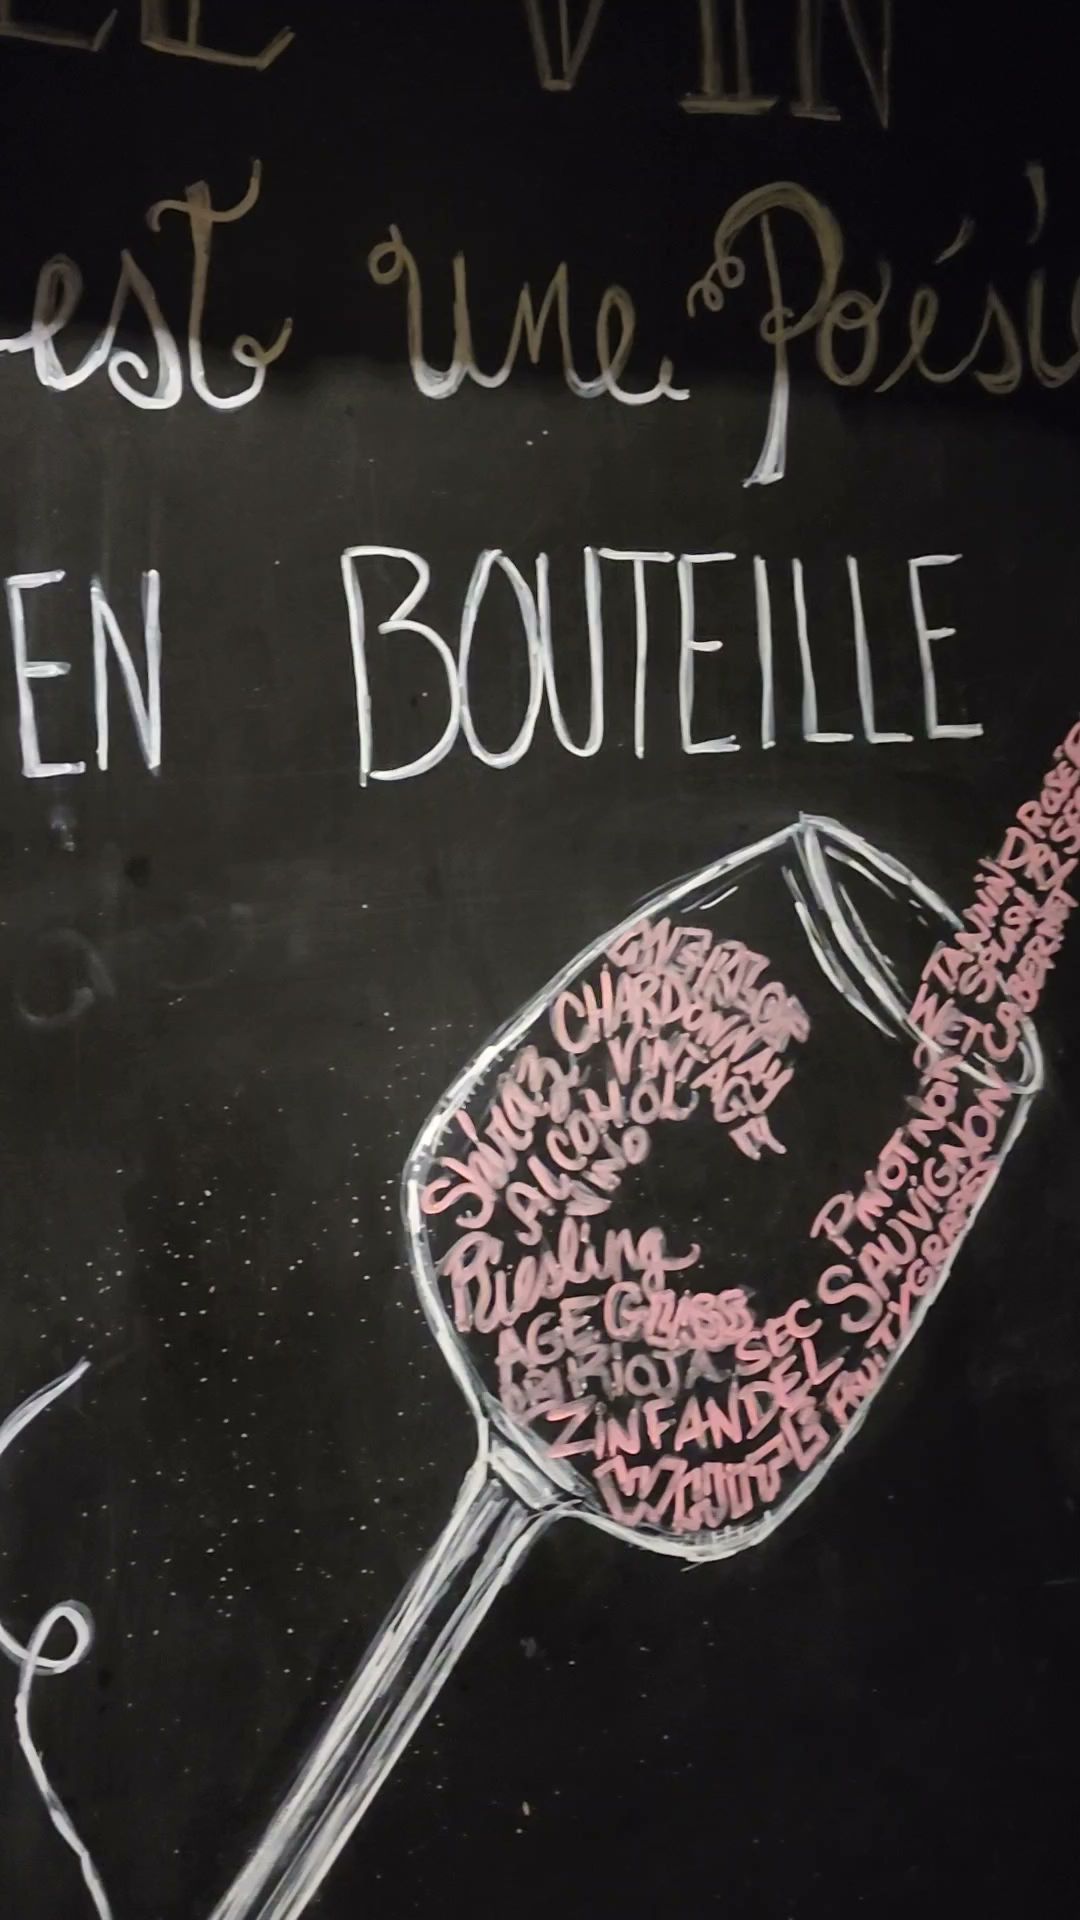 LE VIN
est une Poésie
EN BOUTEILLE
ROSÉ
TANNIN DRY
SPLASH
WET CABERNET
CHARDONNAY
Shiraz VINTAGE
ALCOHOL
VINO
PINOT NOIR
SAUVIGNON
Riesling
GRAPES
AGE GLASS
SEC
FRUITY
RIOJA
ZINFANDEL
WHITE